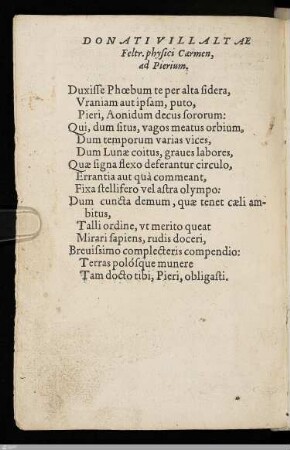 DONATI VILLALTAE
Feltr. physici Carmen,
ad Pierium.
Duxisse Phœbum te per alta sidera,
Vraniam aut ipsam, puto,
Pieri, Aonidum decus sororum:
Qui, dum situs, vagos meatus orbium,
Dum temporum varias vices,
Dum Lunæ coitus, graues labores,
Quæ signa flexo deferantur circulo,
Errantia aut quà commeant,
Fixa stellifero vel astra olympo:
Dum cuncta demum, quæ tenet cæli am-
bitus,
Talli ordine, vt merito queat
Mirari sapiens, rudis doceri,
Breuissimo complecteris compendio:
Terras polósque munere
Tam docto tibi, Pieri, obligasti.